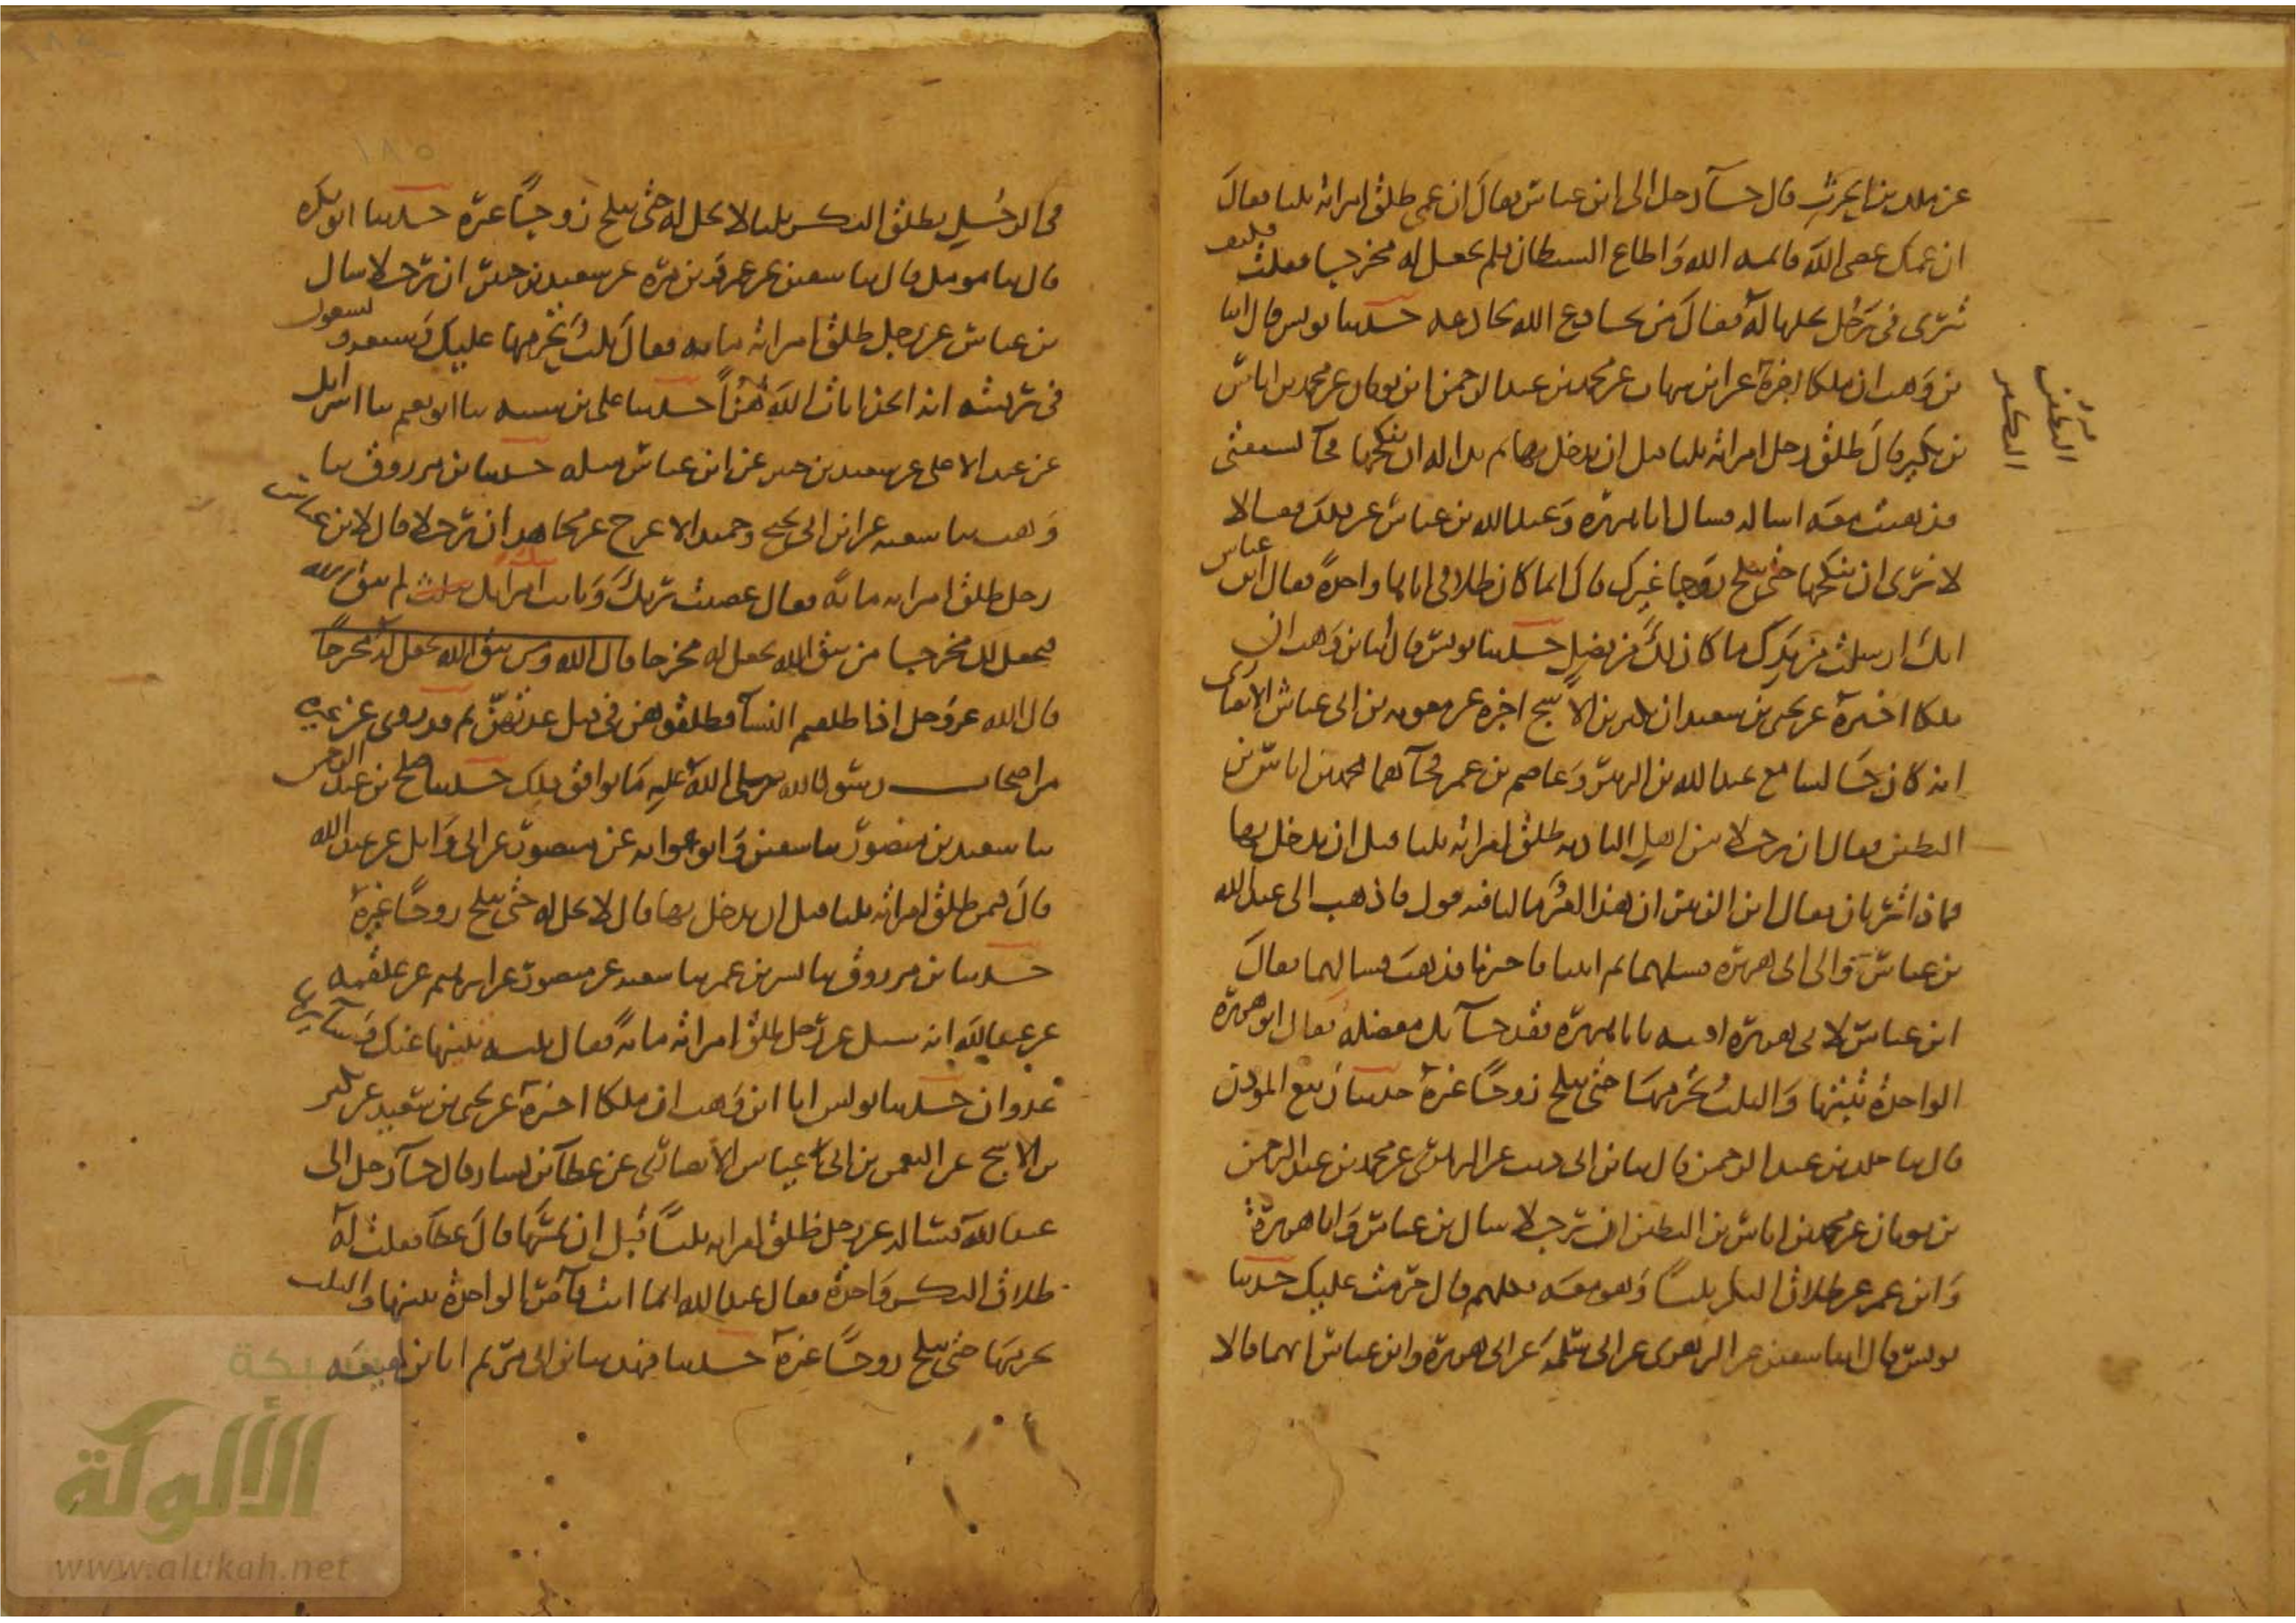 عن ملك بن الحرث قال جآ رجل الى ابن عباس فقال ان عمي طلق امراته ثلثا فقال
ان عمك عصى الله فاثمه الله وَاطاع الشيطان فلم يجعل له مخرجا فقلت فكيف
ترى في رَجُل يحلها لهُ فقالَ مَن يخادع الله يخادعه حدثنا يونس قال انا
بن وَهب ان ملكا اخبرهُ عن ابن شهاب عن محمد بن عبد الرحمن ابن ثوبان عن محمد بن اياس
بن بكير قالَ طلق رجل امراته ثلثا قبل ان يدخل بها ثم بدا له ان ينكحها فجآ يستفتي
فذهبت معَه اسا له فسال ابا هريره وَعبد الله بن عباس عن ذلك فقالا
لا نرى ان تنكحها حتى تنكح زوجا غيرك قال انما كان طلاقي اياها واحدةً فقال ابن عباس
انك ارسلت من يدِك ما كان لكَ من فضلٍ حدثنا يونس قال انا بن وَهب ان
ملكا اخبرهُ عن يحيى بن سعيد ان بكير بن الاشج اخبره عن معويه بن ابى عياش الانصارى
انه كان جَالسا مع عبد الله بن الزبير وَعاصم بن عمر فجآهما محمد بن اياس بن
البكير فقال ان رجلا من اهلِ الباديه طلق امراته ثلثا قبل ان يدخل بها
فماذا تريان فقال ابن الزبير ان هذا الامر ما لنا فيه قول فاذهب الى عبد الله
بن عباس وَالى ابى هريره فسلهما ثم ايتنا فاخبرنا فذهبَ فسالهما فقالَ
ابن عباس لابى هريره افته يا ابا هريره فقد جآتك معضله فقال ابو هريرة
الواحدةُ تُبينُها وَالثلث تُحَرمهَا حتى تنكح زوجًا غيرهُ حدثنا ربيع الموذن
قال ثنا خلد بن عبد الرحمن قال ثنا بن ابى ذيب عن الزهري عن محمد بن عبد الرحمن
بن ثوبان عن محمد بن اياس بن البكير ان رجلا سال بن عباس وَابا هريرة
وَابن عمر عن طلاق البكر ثلثًا وَهو معَه فكلهم قال حرمت عليك حدثنا
يونس قال انا سفين عن الزهرى عن ابى سَلمَه عن ابى هريرة وابن عباس انهما قالا
البكير
١٨٥
في الرجُلِ يطلق البكر ثلثا لا تحل له حتى تنكح زوجًا غيره حدثنا ابو بكره
قال ثنا مومل قال ثنا سفين عن عمرو بن مره عن سعيد بن جبير ان رجلا سال
بن عباس عن رجل طلق امراته مايه فقال ثلث تُحَرمها عليك وَسبعه وتسعون
في رقبته انه اتخذ ايات الله هُزُوًا حدثنا على بن شيبه ثنا ابو نعيم ثنا اسرايل
عن عبد الاعلى عن سعيد بن جبير عن ابن عباس مثله حدثنا بن مرزوق ثنا
وَهب ثنا شعبه عن ابن ابى نجيح وحميد الاعرج عن مجاهد ان رجلا قال لابن عباس
رجل طلق امراته مائة فقال عصيت ربك وَبانت امراتك لم تتق الله
فيجعل لك مخرجا من يتق الله يجعل له مخرجا قال الله ومن يتق الله يجعل له مخرجًا
قال الله عز وجل اذا طلقتم النسآ فطلقوهن فى قبل عدتهنَّ ثم قد روى عن غيره
من اصحاب رسول الله صلى الله عليه مَا يوافق ذلك حدثنا صلح بن عبد الرحمن
ثنا سعيد بن منصور ثنا سفين وَابو عوانه عن منصور عن ابى وَايل عن عبد الله
قالَ فيمن طلق امراته ثلثا قبل ان يدخل بها قال لا تحل له حتى تنكح زوجًا غيرهُ
حدثنا بن مرزوق ثنا بشر بن عمر ثنا شعبه عن منصور عن ابرهيم عن علقمه
عن عبد الله انه سيل عن رجل طلق امراته مائةً فقال ثلث تبينها عنك وَسايرها
عدوان حدثنا يونس انا ابن وَهب ان ملكا اخبرهُ عن يحيى بن سَعيد عن بكير
بن الاشج عن النعمن بن ابى عياش الانصاري عن عطآ بن يسار قال جآ رجل الى
عبد اللهِ فسَاله عن رجل طلق امراته ثلثًا قبل ان يمسَّها قال عطآ فقلت له
طلاق البكر وَاحدة فقال عبد الله انما انت قآص الواحدة تبينها والثلث
تحرمهَا حتى تنكح زوجًا غيرهُ حدثنا فهد ثنا بن ابى مريم انا بن لهيعَه
شبكة
الألوكة
www.alukah.net